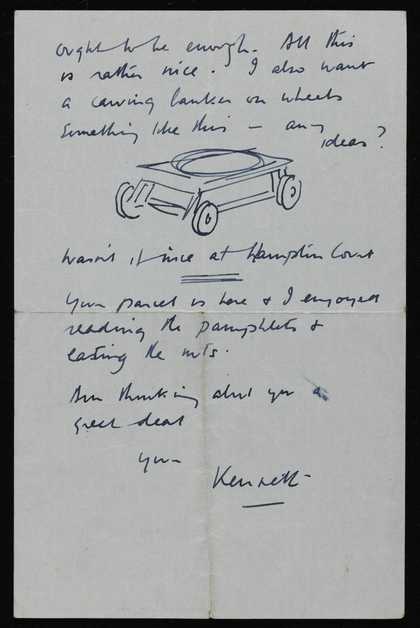 ought to be enough. All this
is rather nice. I also want
a carving banker on wheels
something like this – any
ideas?
Wasn't it nice at Hampton Court
Your parcel is here & I enjoyed
reading the pamphlets &
eating the nuts.
Am thinking about you a
great deal
Your
Kenneth